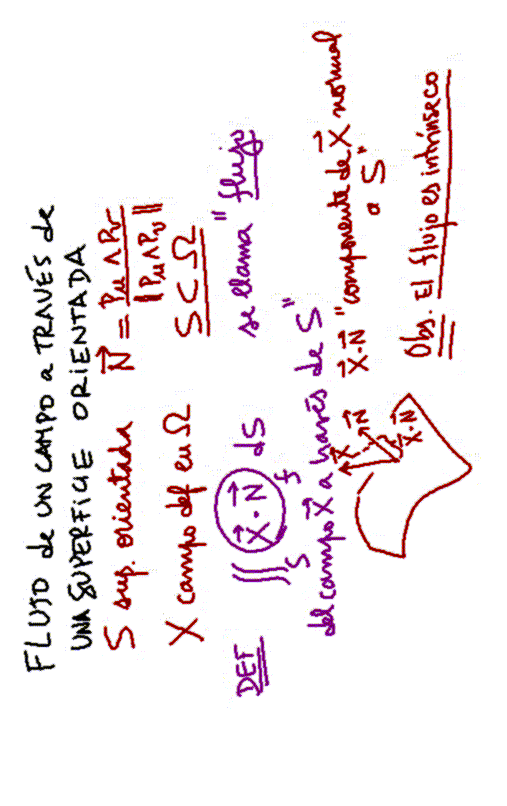 FLUJO de UN CAMPO a TRAVÉS de
UNA SUPERFICIE ORIENTADA
S sup. orientada N⃗ = Pu ∧ Pv / ‖Pu ∧ Pv‖
X campo def en Ω S ⊂ Ω
DEF ∬_S X⃗·N⃗ dS se llama "flujo
f
del campo X⃗ a través de S"
X⃗·N⃗ "componente de X⃗ normal
a S"
X⃗ N⃗
X⃗·N⃗
Obs. El flujo es intrínseco